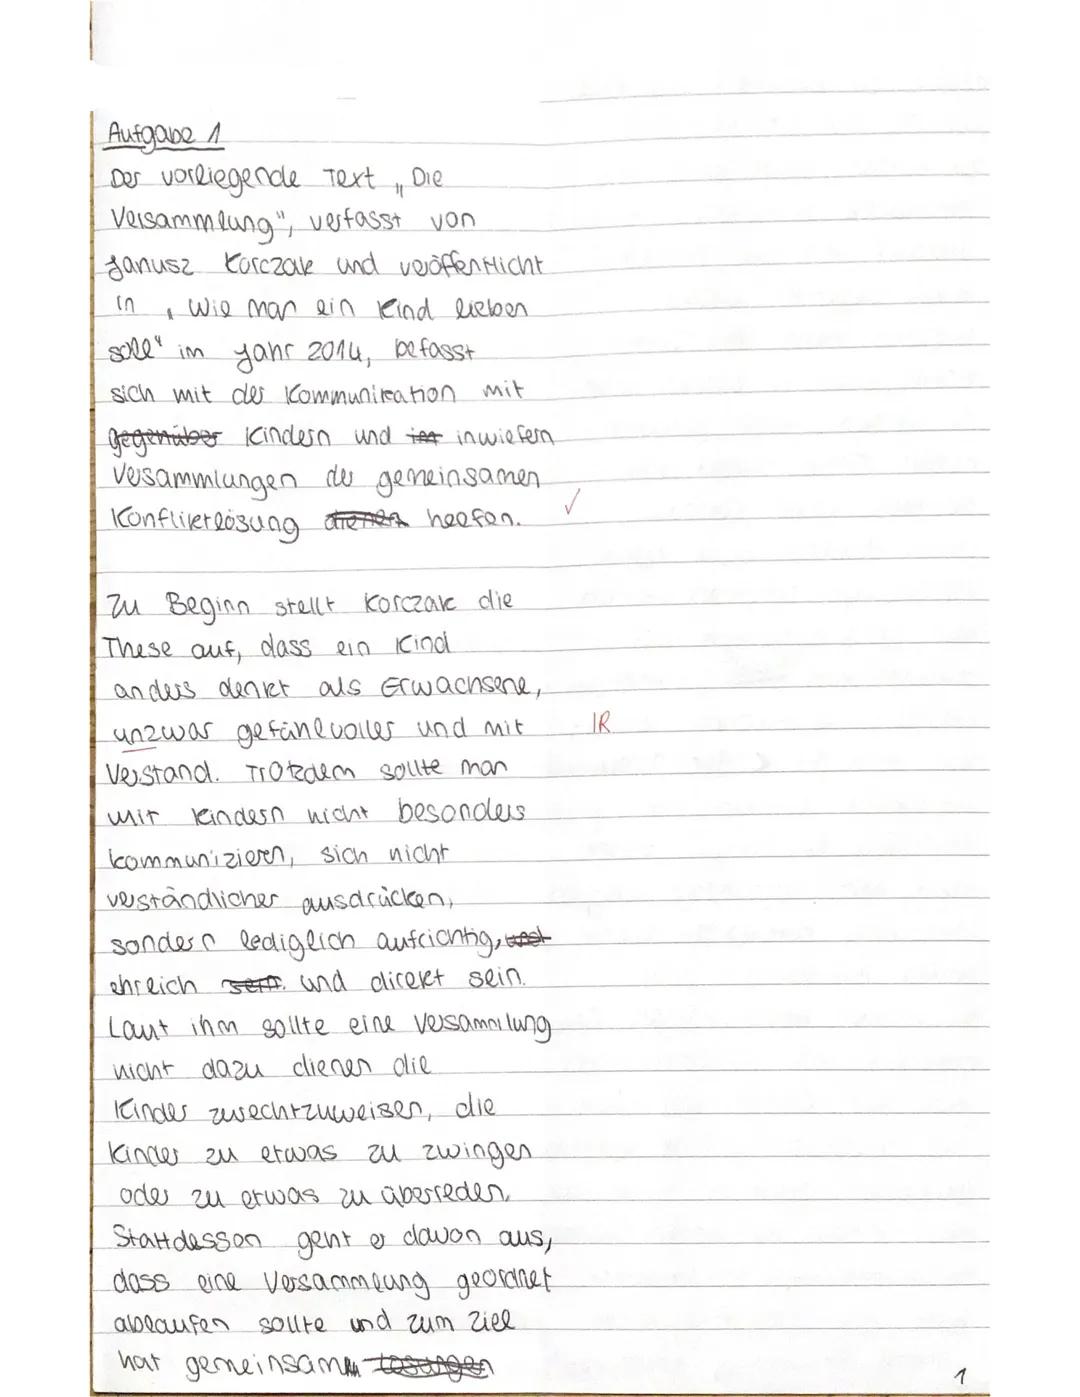 Aufgabe 1
Der vorliegende Text „Die
Versammlung", verfasst von
Janusz Korczak und veröffentlicht
in „Wie man ein Kind lieben
soll" im Jahr 2014, befasst
sich mit der Kommunikation mit
gegenüber Kindern und ist inwiefern
Versammlungen der gemeinsamen
Konfliktlösung dienen helfen. ✓
Zu Beginn stellt Korczak die
These auf, dass ein Kind
anders denkt als Erwachsene,
unzwar gefühlvoller und mit IR
Verstand. Trotzdem sollte man
mit Kindern nicht besonders
kommunizieren, sich nicht
verständlicher ausdrücken,
sondern lediglich aufrichtig,
ehrlich sein. und direkt sein.
Laut ihm sollte eine Versammlung
nicht dazu dienen die
Kinder zurechtzuweisen, die
Kinder zu etwas zu zwingen
oder zu etwas zu überreden.
Stattdessen geht er davon aus,
dass eine Versammlung geordnet
ablaufen sollte und zum Ziel
hat gemeinsam Lösungen
1